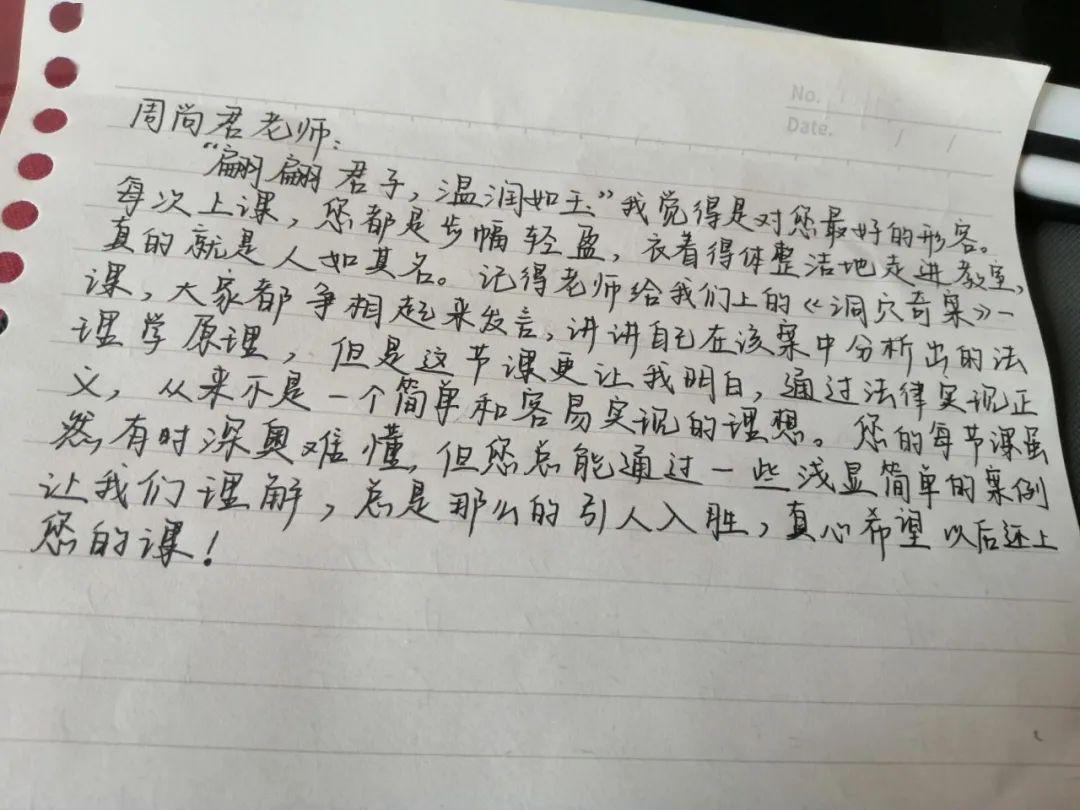 No.
Date. / /
周尚君老师：
“翩翩君子，温润如玉”我觉得是对您最好的形容。
每次上课，您都是步幅轻盈，衣着得体整洁地走进教室，
真的就是人如其名。记得老师给我们上的《洞穴奇案》一
课，大家都争相起来发言，讲讲自己在该案中分析出的法
理学原理，但是这节课更让我明白，通过法律实现正
义，从来不是一个简单和容易实现的理想。您的每节课虽
然有时深奥难懂，但您总能通过一些浅显简单的案例
让我们理解，总是那么的引人入胜，真心希望以后还上
您的课！